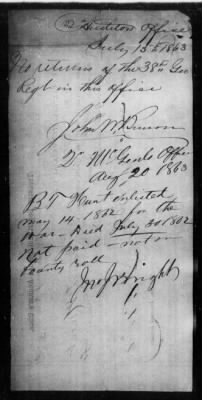 2d Auditor Office
July 13th 1863
No returns of the 38th Geo
Regt in this office
John W.
Office
Aug 20 1863
B T Hunt enlisted
May 14 - 1862 for the
War - Died July 30 1862
Not paid - not on
bounty roll
Jno Wright